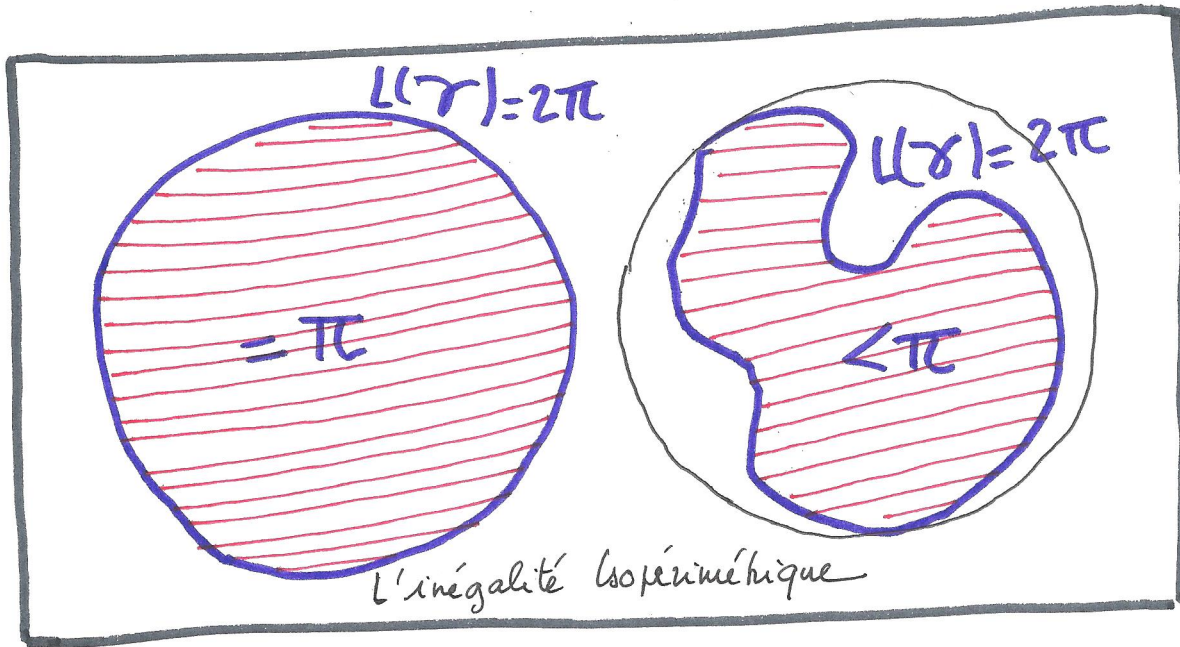 L(γ)=2π
L(γ)=2π
=π
<π
L'inégalité Isopérimétrique